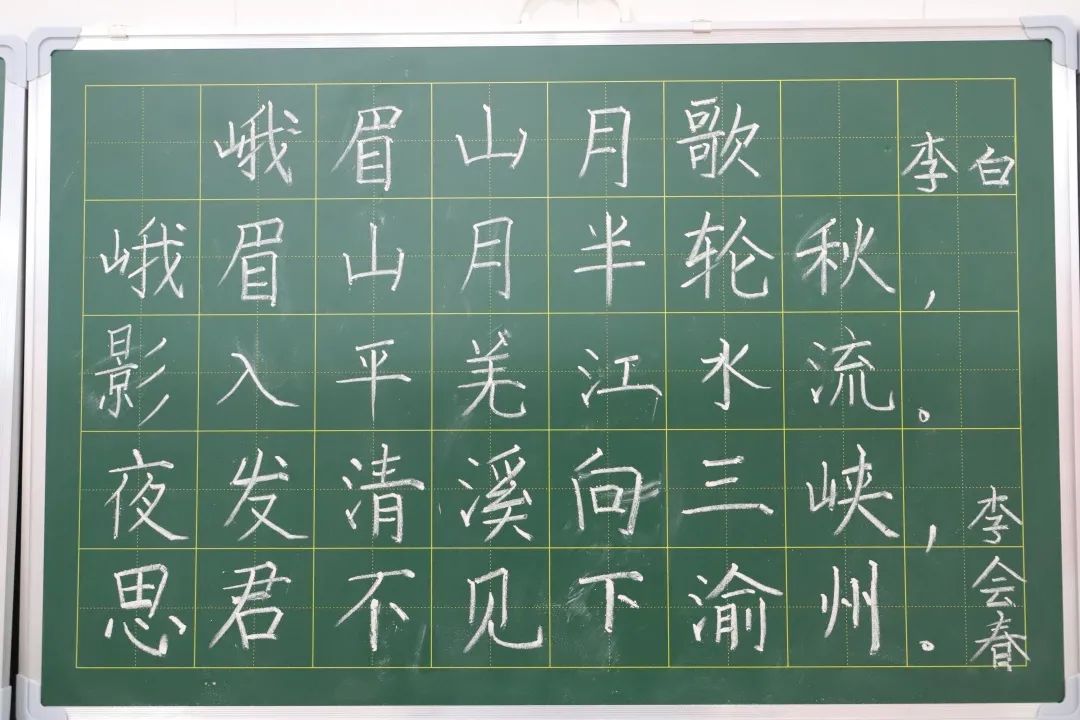 峨眉山月歌 李白
峨眉山月半轮秋，
影入平羌江水流。
夜发清溪向三峡，
思君不见下渝州。
李会春